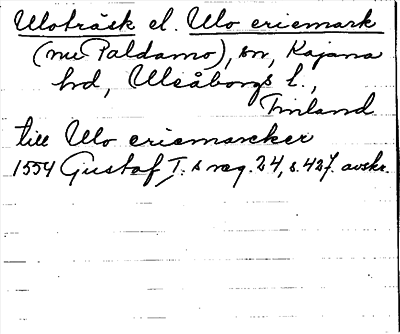 Uloträsk el. Ulo eriemark
(nu Paldamo), sn, Kajana
hd, Uleåborgs l.,
Finland
till Ulo eriemarcker
1554 Gustaf I:s reg. 24, s. 427. avskr.